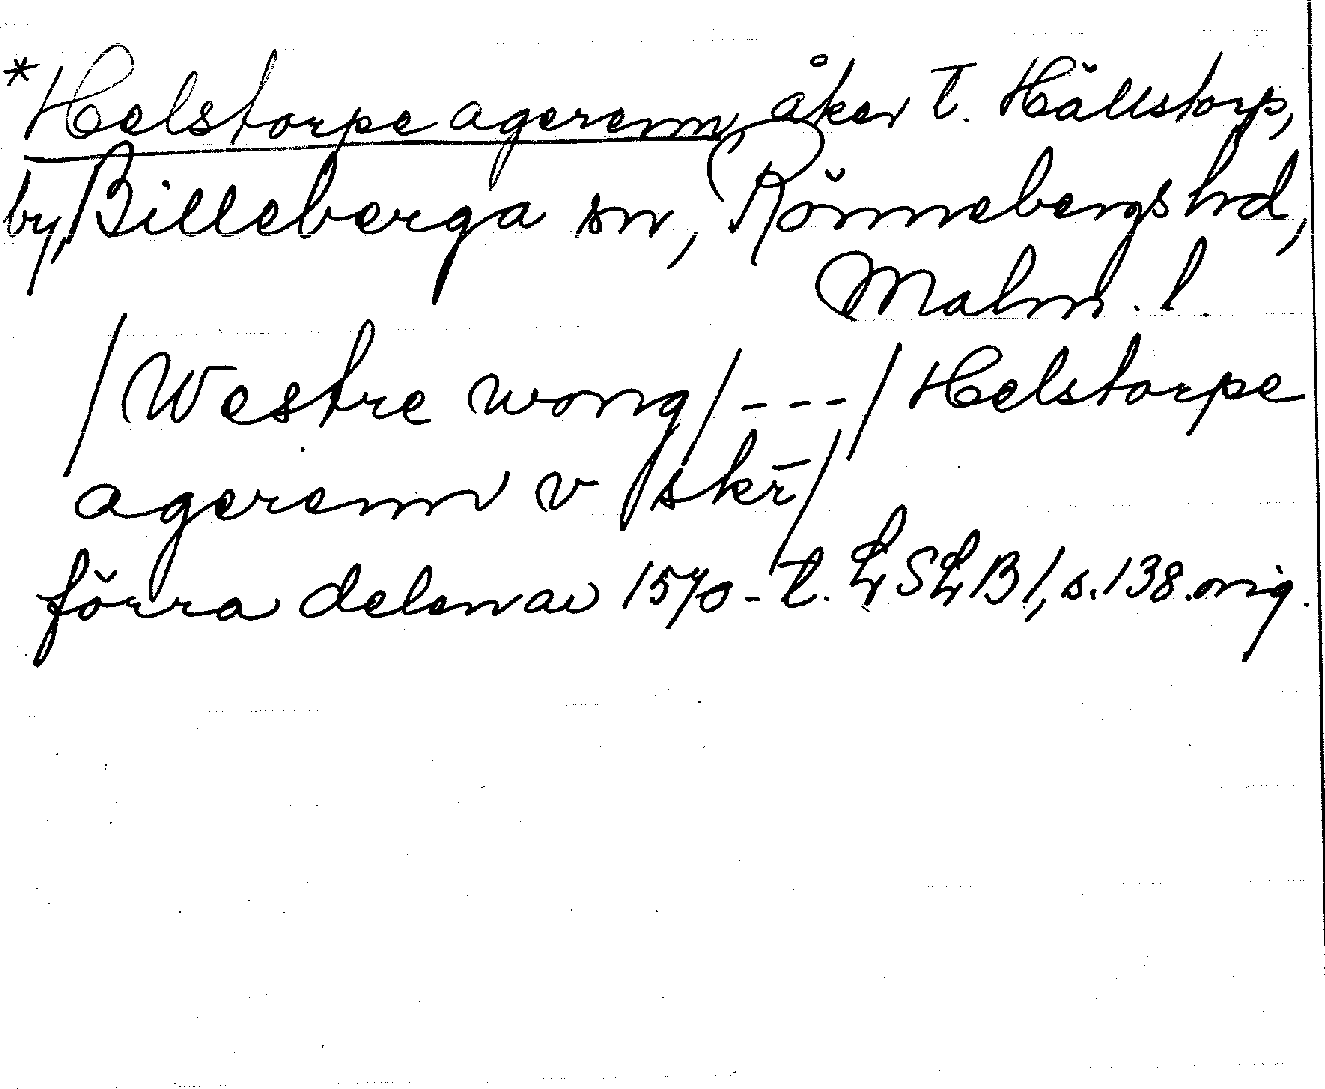 *Helstorpe agerenn, åker t. Hällstorp,
by, Billeberga sn, Rönnebergs hd,
Malm. l.
/Westre wong/ - - - / Helstorpe
agerenn v skr/
förra delen av 1570-t. LSLB1, s. 138. orig.